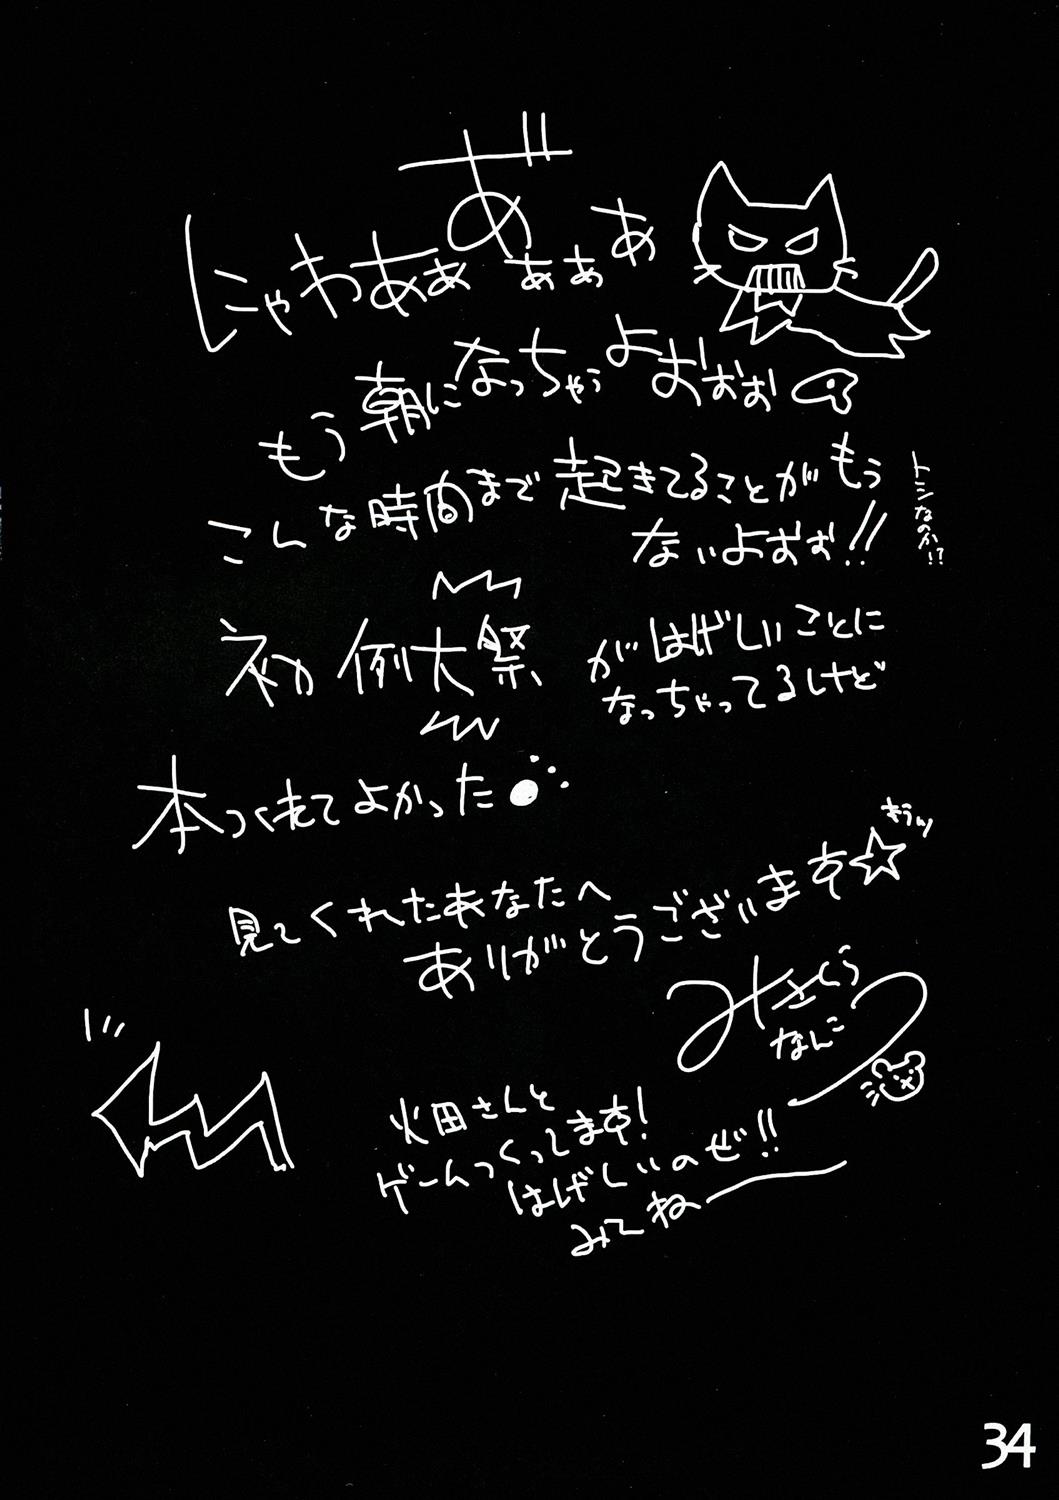 にゃわああ゛ぁぁあ
もう朝になっちゃうよおぉぉ
こんな時間まで起きてることがもう
ないよおぉ!!
トシなのか!?
初例大祭
がはげしいことに
なっちゃってるけど
本つくれてよかった
見てくれたあなたへ
ありがとうございます☆
きらッ
みさくら
なんこつ
火田さんと
ゲームつくってます!
はげしいのぜ!!
みてねー
34